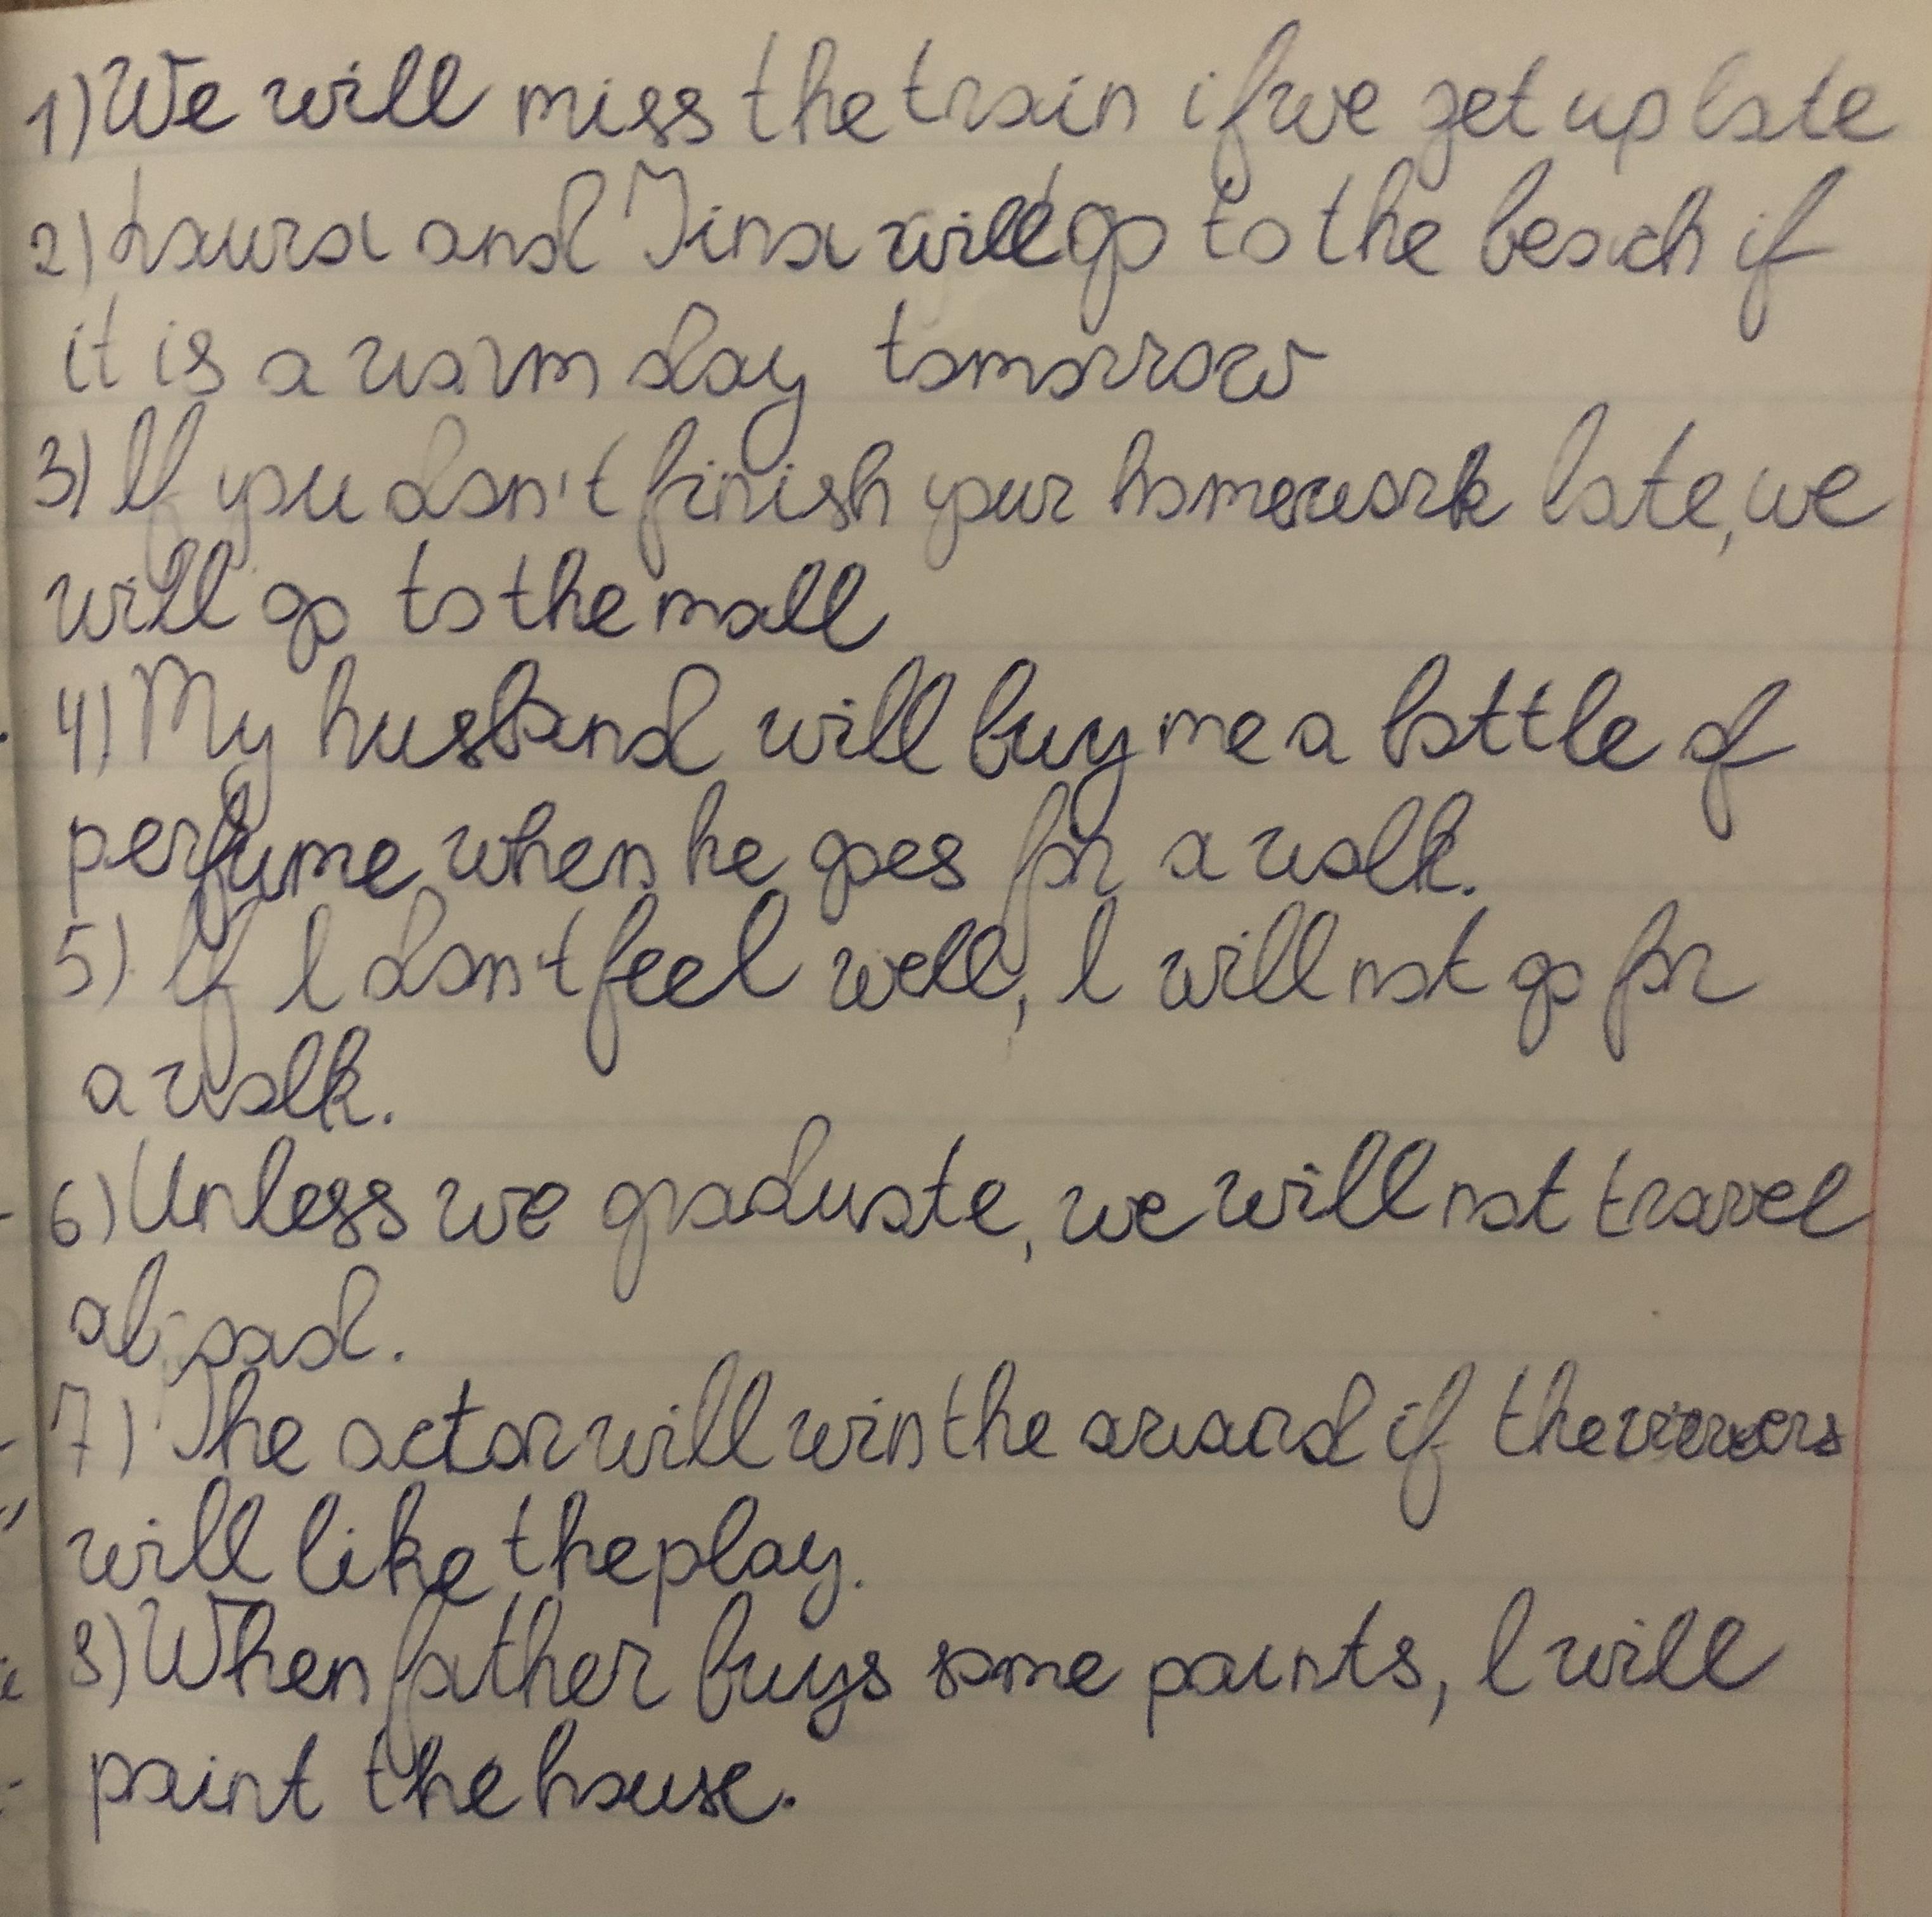 1) We will miss the train if we get up late
2) Laura and Tina will go to the beach if
it is a warm day tomorrow
3) If you don't finish your homework late, we
will go to the mall
4) My husband will buy me a bottle of
perfume when he goes for a walk.
5) If I don't feel well, I will not go for
a walk.
6) Unless we graduate, we will not travel
abroad.
7) The actor will win the award if the viewers
will like the play.
8) When father buys some paints, I will
paint the house.